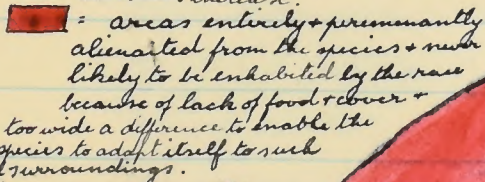 = areas entirely + peremenantly
alienaited from the species + never
likely to be enhabited by the race
because of lack of food + cover +
too wide a difference to enable the
species to adapt itself to such
surroundings.